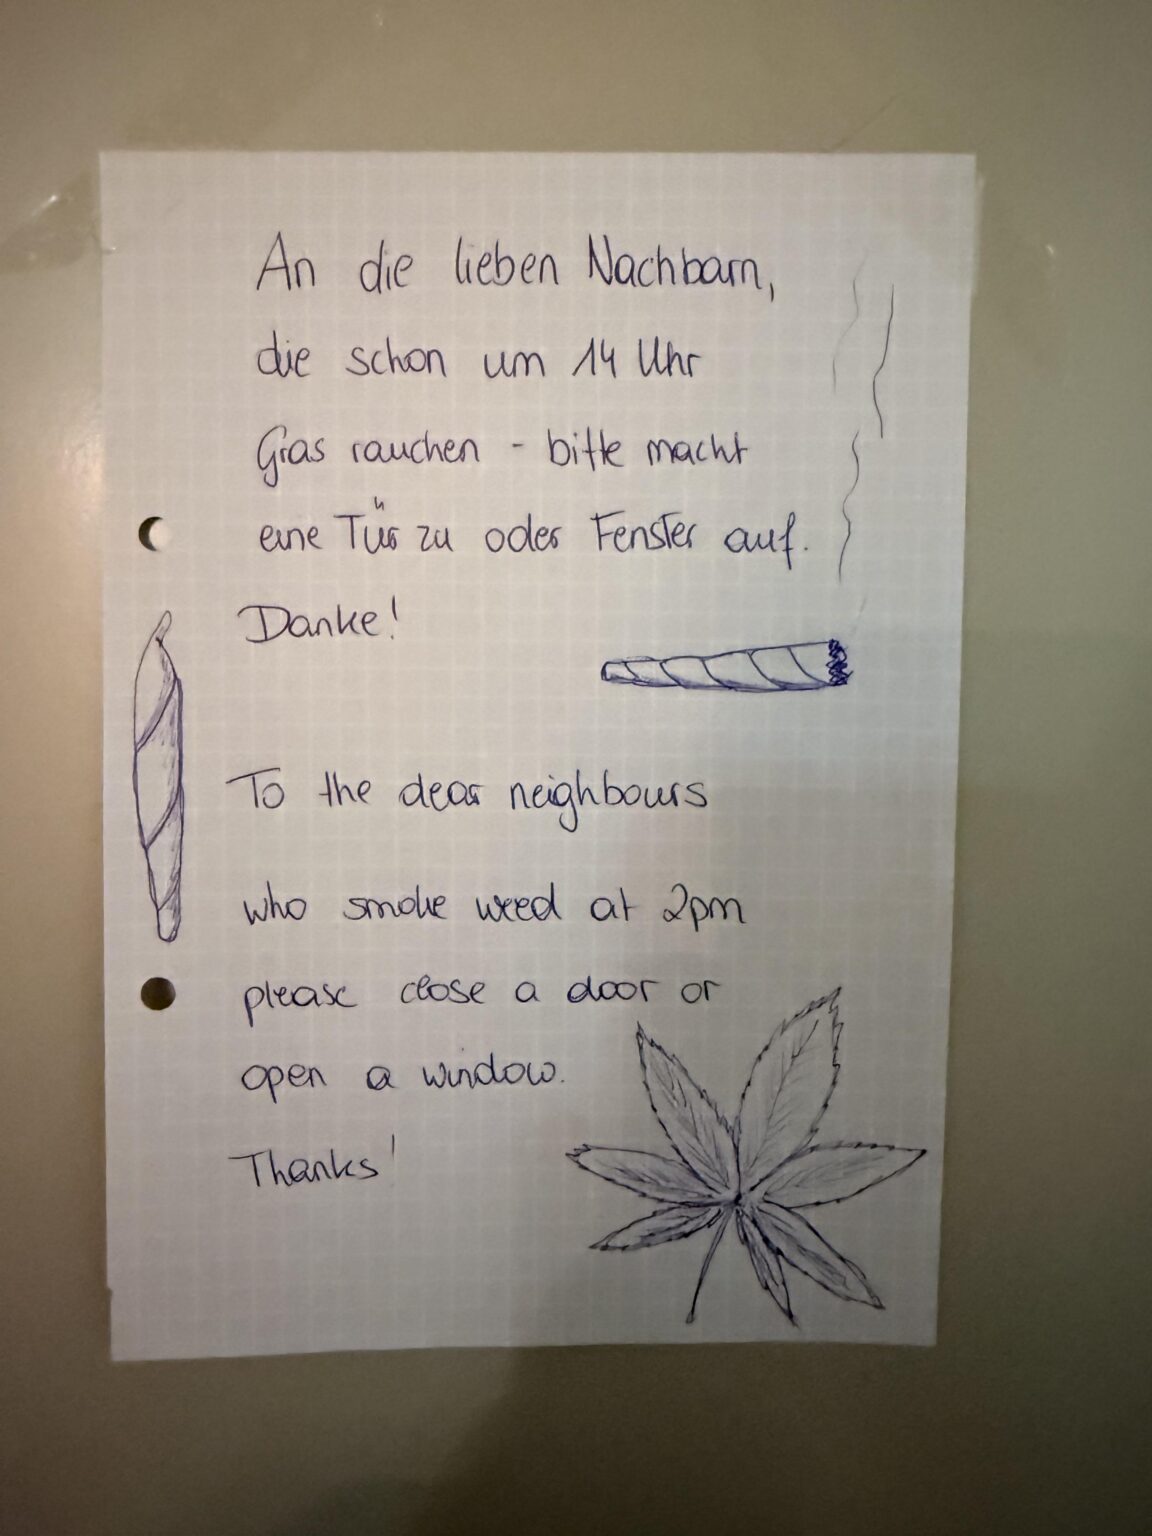 An die lieben Nachbarn,
die schon um 14 Uhr
Gras rauchen - bitte macht
eine Tür zu oder Fenster auf.
Danke!
To the dear neighbours
who smoke weed at 2pm
please close a door or
open a window.
Thanks!